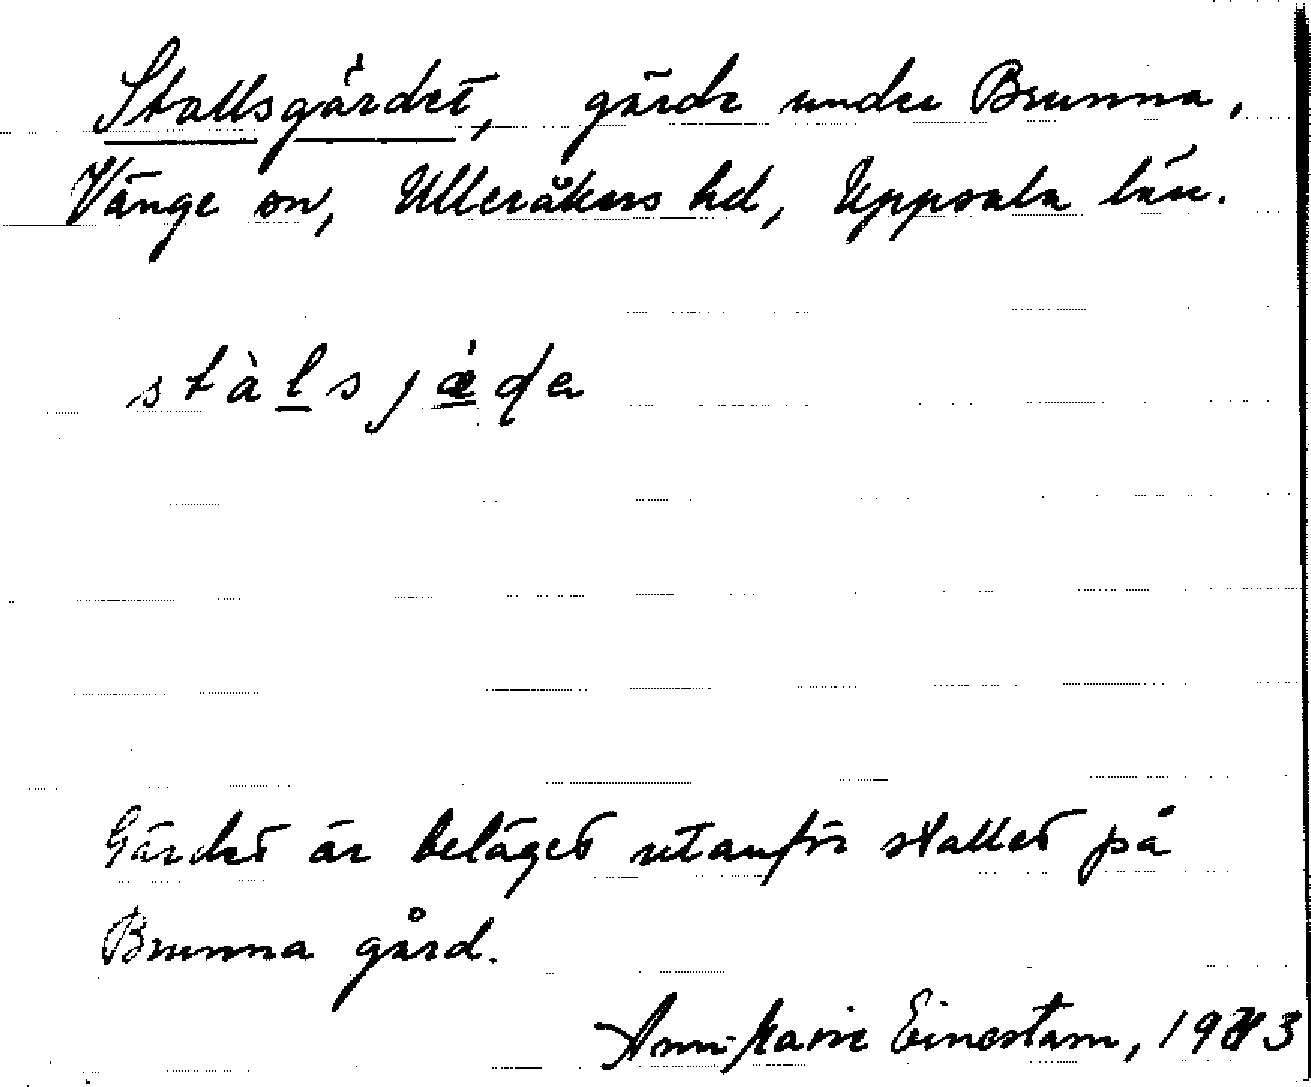 Stallsgärdet, gärde under Brunna,
Vänge sn, Ulleråkers hd, Uppsala län.
stàlsjæ̀ɖa
Gärdet är beläget utanför stallet på
Brunna gård.
Einestam,